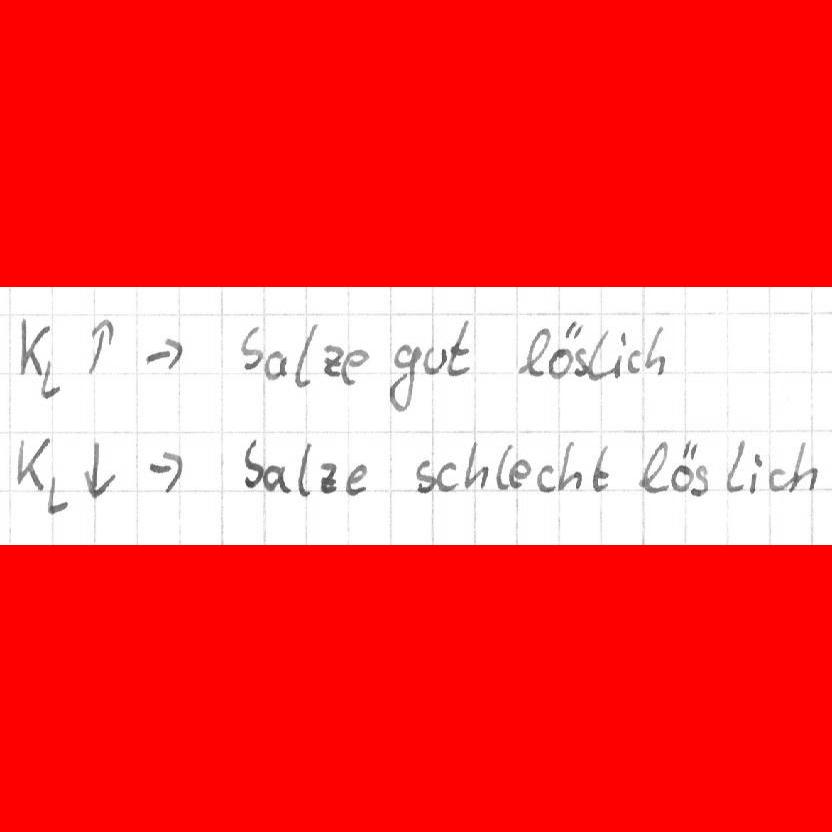 K_L ↑ → Salze gut löslich
K_L ↓ → Salze schlecht löslich